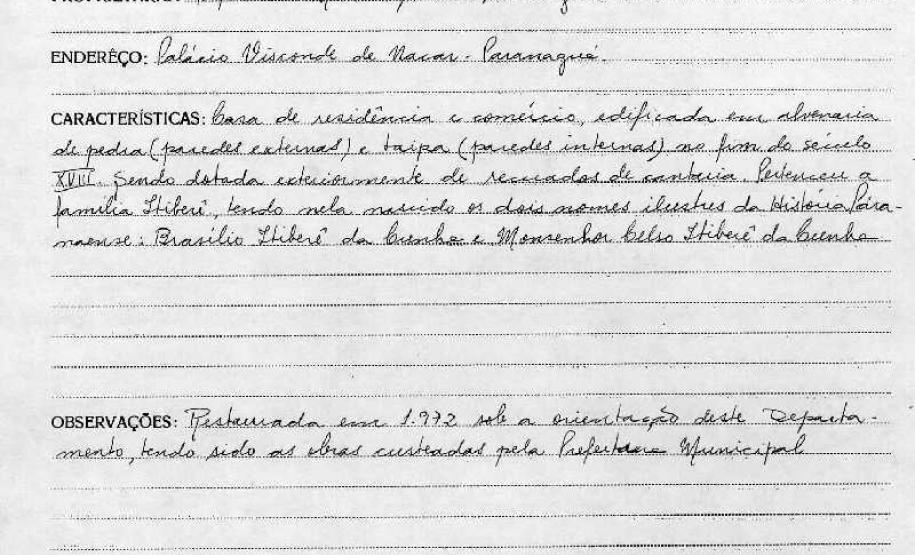 ENDERÊÇO: Palácio Visconde de Nacar - Paranaguá.
CARACTERÍSTICAS: Casa de residência e comércio, edificada em alvenaria
de pedra (paredes externas) e taipa (paredes internas) no fim do século
XVIII. Sendo dotada exteriormente de recuados de cantaria. Pertenceu a
família Itiberê, tendo nela nascido os dois nomes ilustres da História Para-
naense: Brasílio Itiberê da Cunha e Monsenhor Celso Itiberê da Cunha
OBSERVAÇÕES: Restaurada em 1.972 sob a orientação deste Departa-
mento, tendo sido as obras custeadas pela Prefeitura Municipal